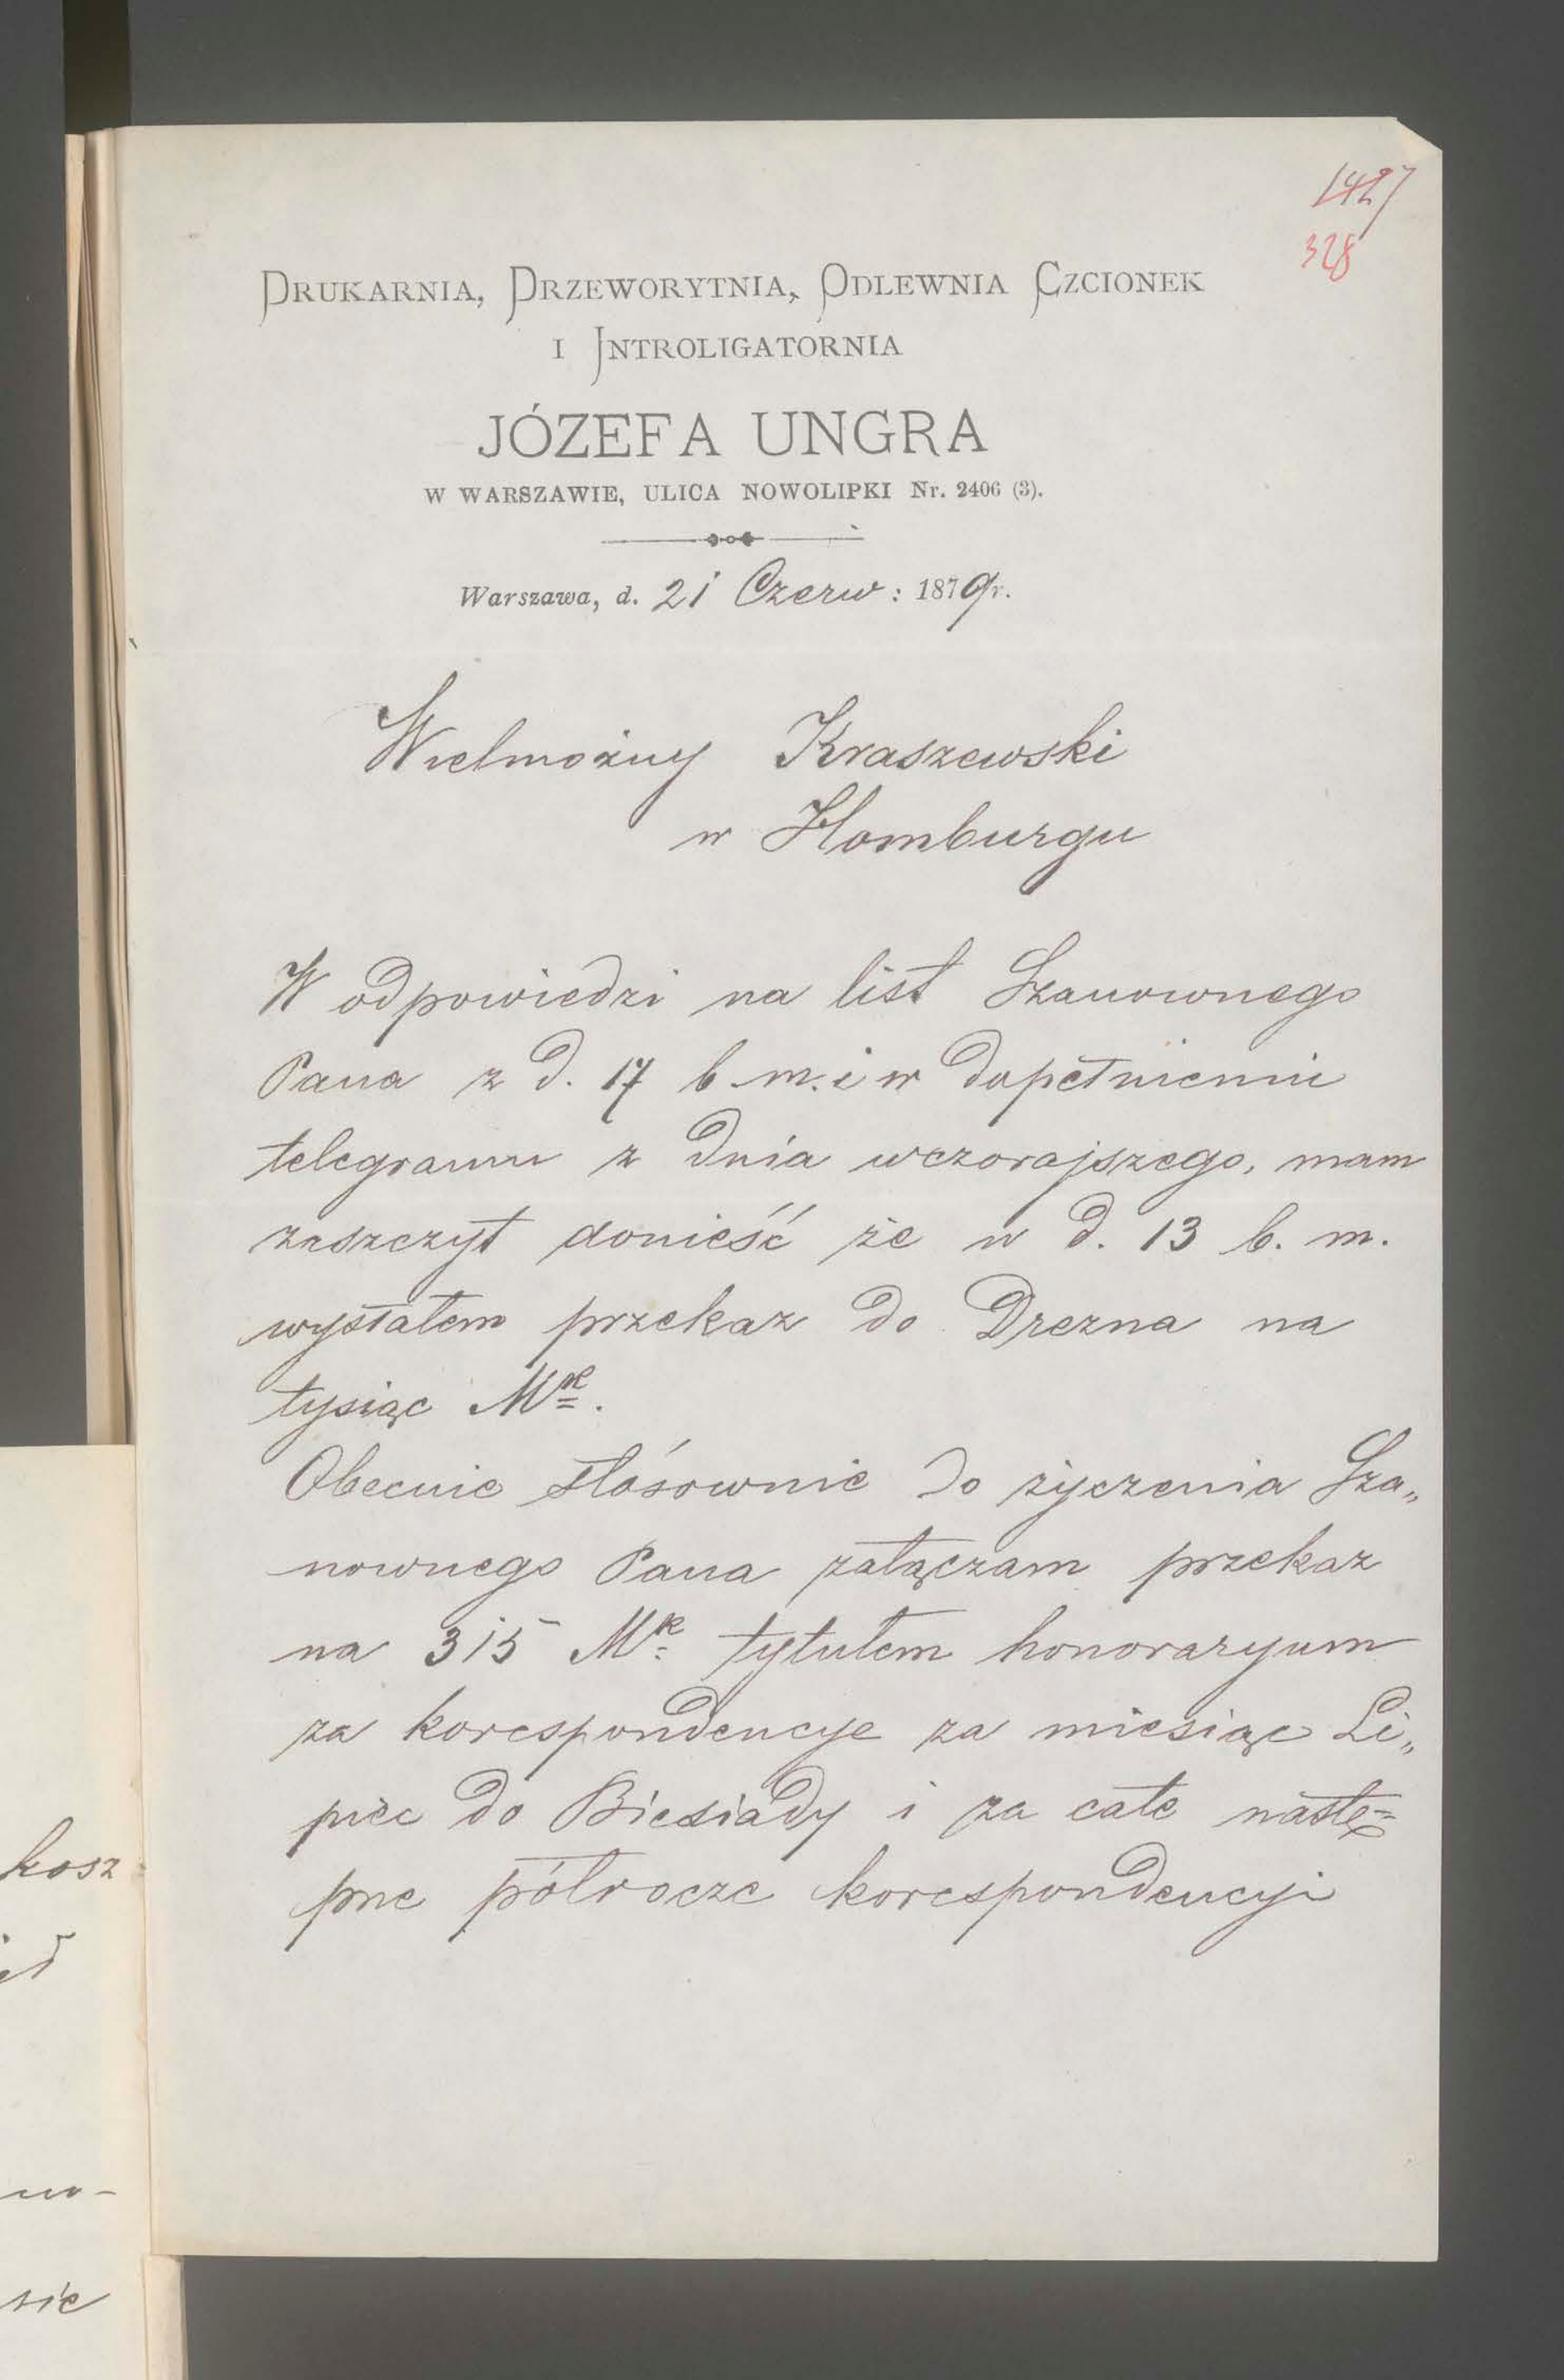 1427
328
DRUKARNIA, DRZEWORYTNIA, ODLEWNIA CZCIONEK
I INTROLIGATORNIA
JÓZEFA UNGRA
W WARSZAWIE, ULICA NOWOLIPKI Nr. 2406 (3).
Warszawa, d. 21 Czerw: 1879 r.
Wielmożny Kraszewski
w Homburgu
W odpowiedzi na list Szanownego
Pana z d. 17 b m. i w dopełnieniu
telegramu z dnia wczorajszego, mam
zaszczyt donieść że w d. 13 b. m.
wysłałem przekaz do Drezna na
tysiąc Mk.
Obecnie stósownie do życzenia Sza„
nownego Pana załączam przekaz
na 315 Mk tytułem honoraryum
za korespondencye za miesiąc Li„
piec do Biesiady i za całe nastę=
pne półrocze korespondencyi
kosz
no-
sie